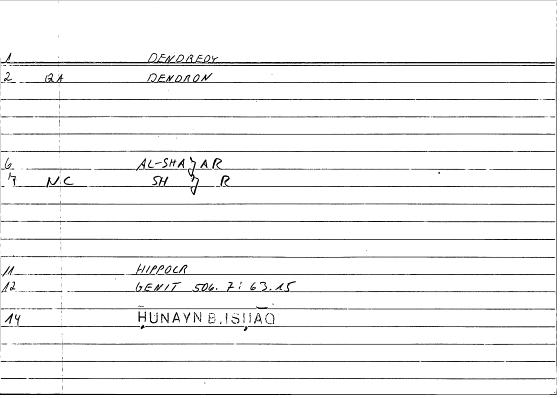 1 DENDREDY
2 QA DENDRON
6 AL-SHAǦAR
7 NC SH Ǧ R
11 HIPPOCR
12 GENIT 506. 7: 63.15
14 ḤUNAYN B. ISḤĀQ